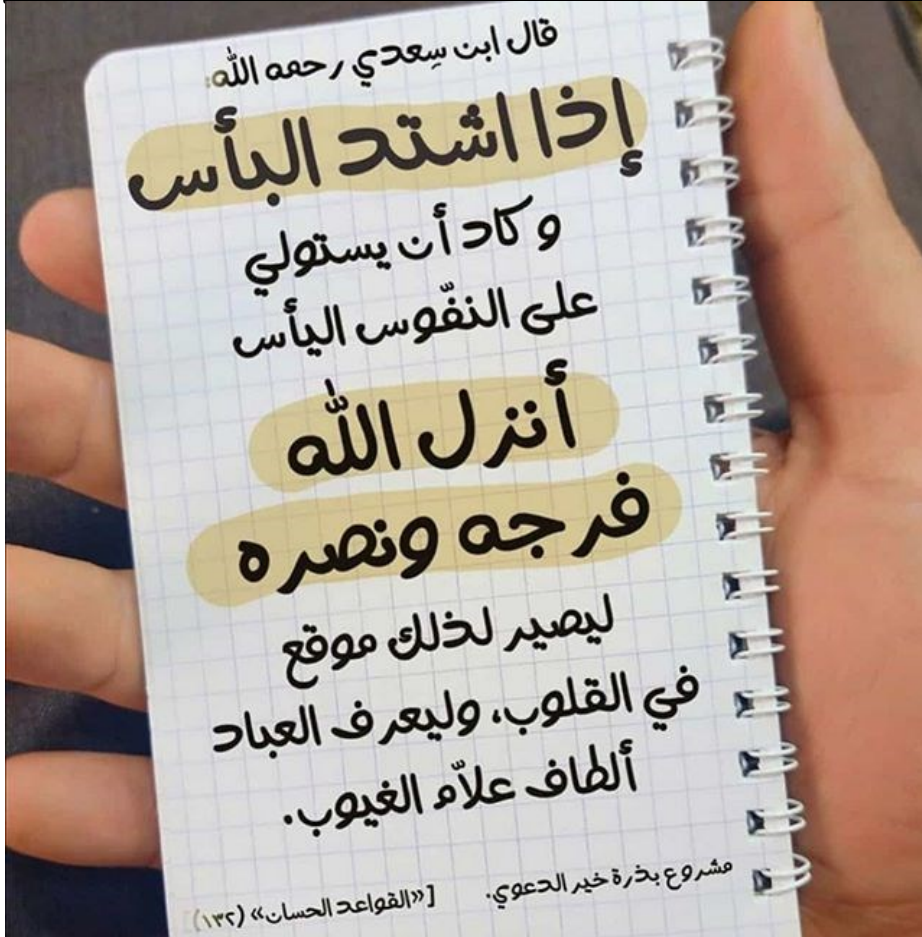 قال ابن سِعدي رحمه الله:
إذا اشتد البأس
وكاد أن يستولي
على النفّوس اليأس
أنزل الله
فرجه ونصره
ليصير لذلك موقع
في القلوب، وليعرف العباد
ألطاف علاّم الغيوب.
مشروع بذرة خير الدعوي. [«القواعد الحسان» (١٣٢)]